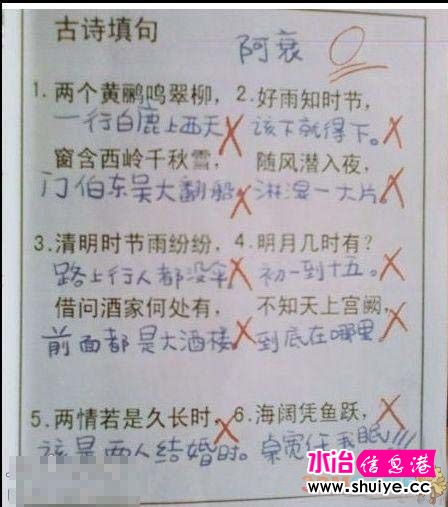 古诗填句
阿衰 0
1. 两个黄鹂鸣翠柳，
一行白鹿上西天
窗含西岭千秋雪，
门伯东吴大翻船
2. 好雨知时节，
该下就得下。
随风潜入夜，
淋湿一大片。
3. 清明时节雨纷纷，
路上行人都没伞
借问酒家何处有，
前面都是大酒楼。
4. 明月几时有？
初一到十五。
不知天上宫阙，
到底在哪里
5. 两情若是久长时，
该是两人结婚时。
6. 海阔凭鱼跃，
桌宽任我眠!!!
水冶信息港
www.shuiye.cc